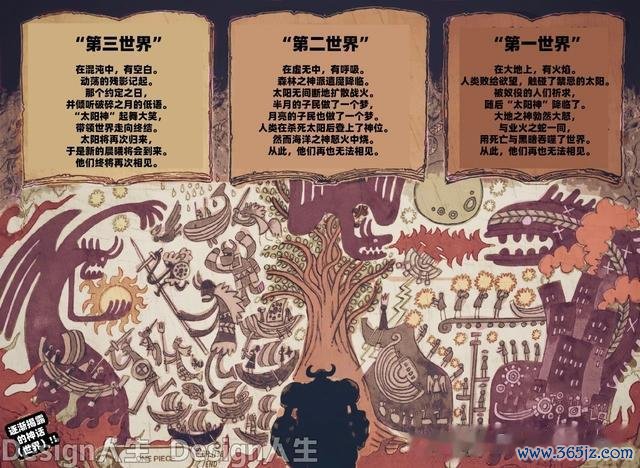 “第三世界”
在混沌中，有空白。
动荡的残影记起。
那个约定之日，
并倾听破碎之月的低语。
“太阳神”起舞大笑，
带领世界走向终结。
太阳将再次归来，
于是新的晨曦将会到来。
他们终将再次相见。
“第二世界”
在虚无中，有呼吸。
森林之神派遣魔降临。
太阳无间断地扩散战火。
半月的子民做了一个梦，
月亮的子民做了一个梦。
人类在杀死太阳后登上了神位。
然而海洋之神怒火中烧。
从此，他们再也无法相见。
“第一世界”
在大地上，有火焰。
人类败给欲望，触碰了禁忌的太阳。
被奴役的人们祈求，
随后“太阳神”降临了。
大地之神勃然大怒，
与业火之蛇一同，
用死亡与黑暗吞噬了世界。
从此，他们再也无法相见。
逐渐揭露
的神话
（世界）!!
ONE PIECE
/END
Design人生 Design人生
www.365jz.com